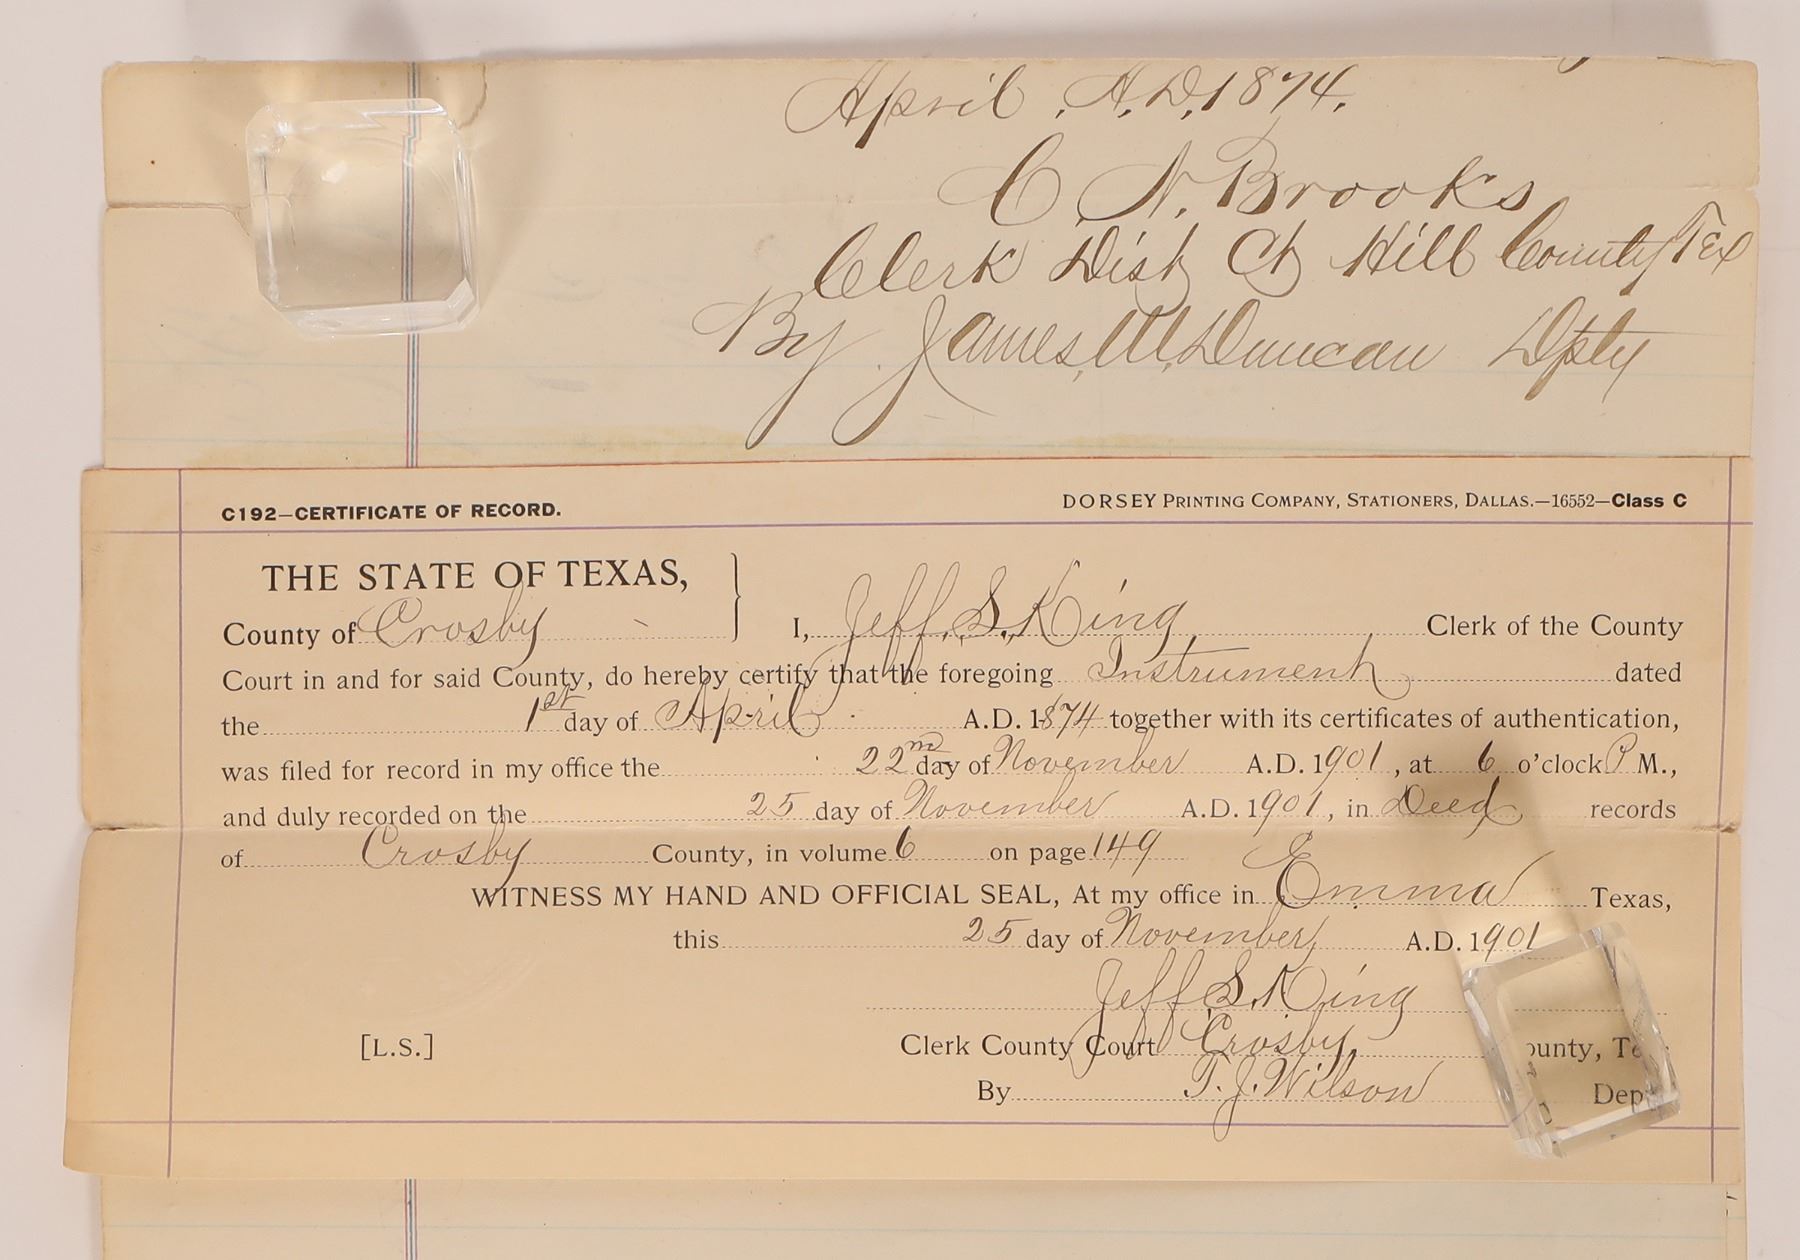 April, A.D. 1874.
C. N. Brooks
Clerk Dist Ct Hill County Tex
By James, W. Duncan Dpty
C192—CERTIFICATE OF RECORD.
DORSEY PRINTING COMPANY, STATIONERS, DALLAS.—16552—Class C
THE STATE OF TEXAS,
County of Crosby
I, Jeff. S. King, Clerk of the County
Court in and for said County, do hereby certify that the foregoing Instrument dated
the 1st day of April A.D. 1874 together with its certificates of authentication,
was filed for record in my office the 22nd day of November A.D. 1901, at 6 o'clock P M.,
and duly recorded on the 25 day of November A.D. 1901, in Deed records
of Crosby County, in volume 6 on page 149
WITNESS MY HAND AND OFFICIAL SEAL, At my office in Emma Texas,
this 25 day of November, A.D. 1901
Jeff. S. King
[L.S.]
Clerk County Court Crosby, ounty, Te
By T. J. Wilson Dep